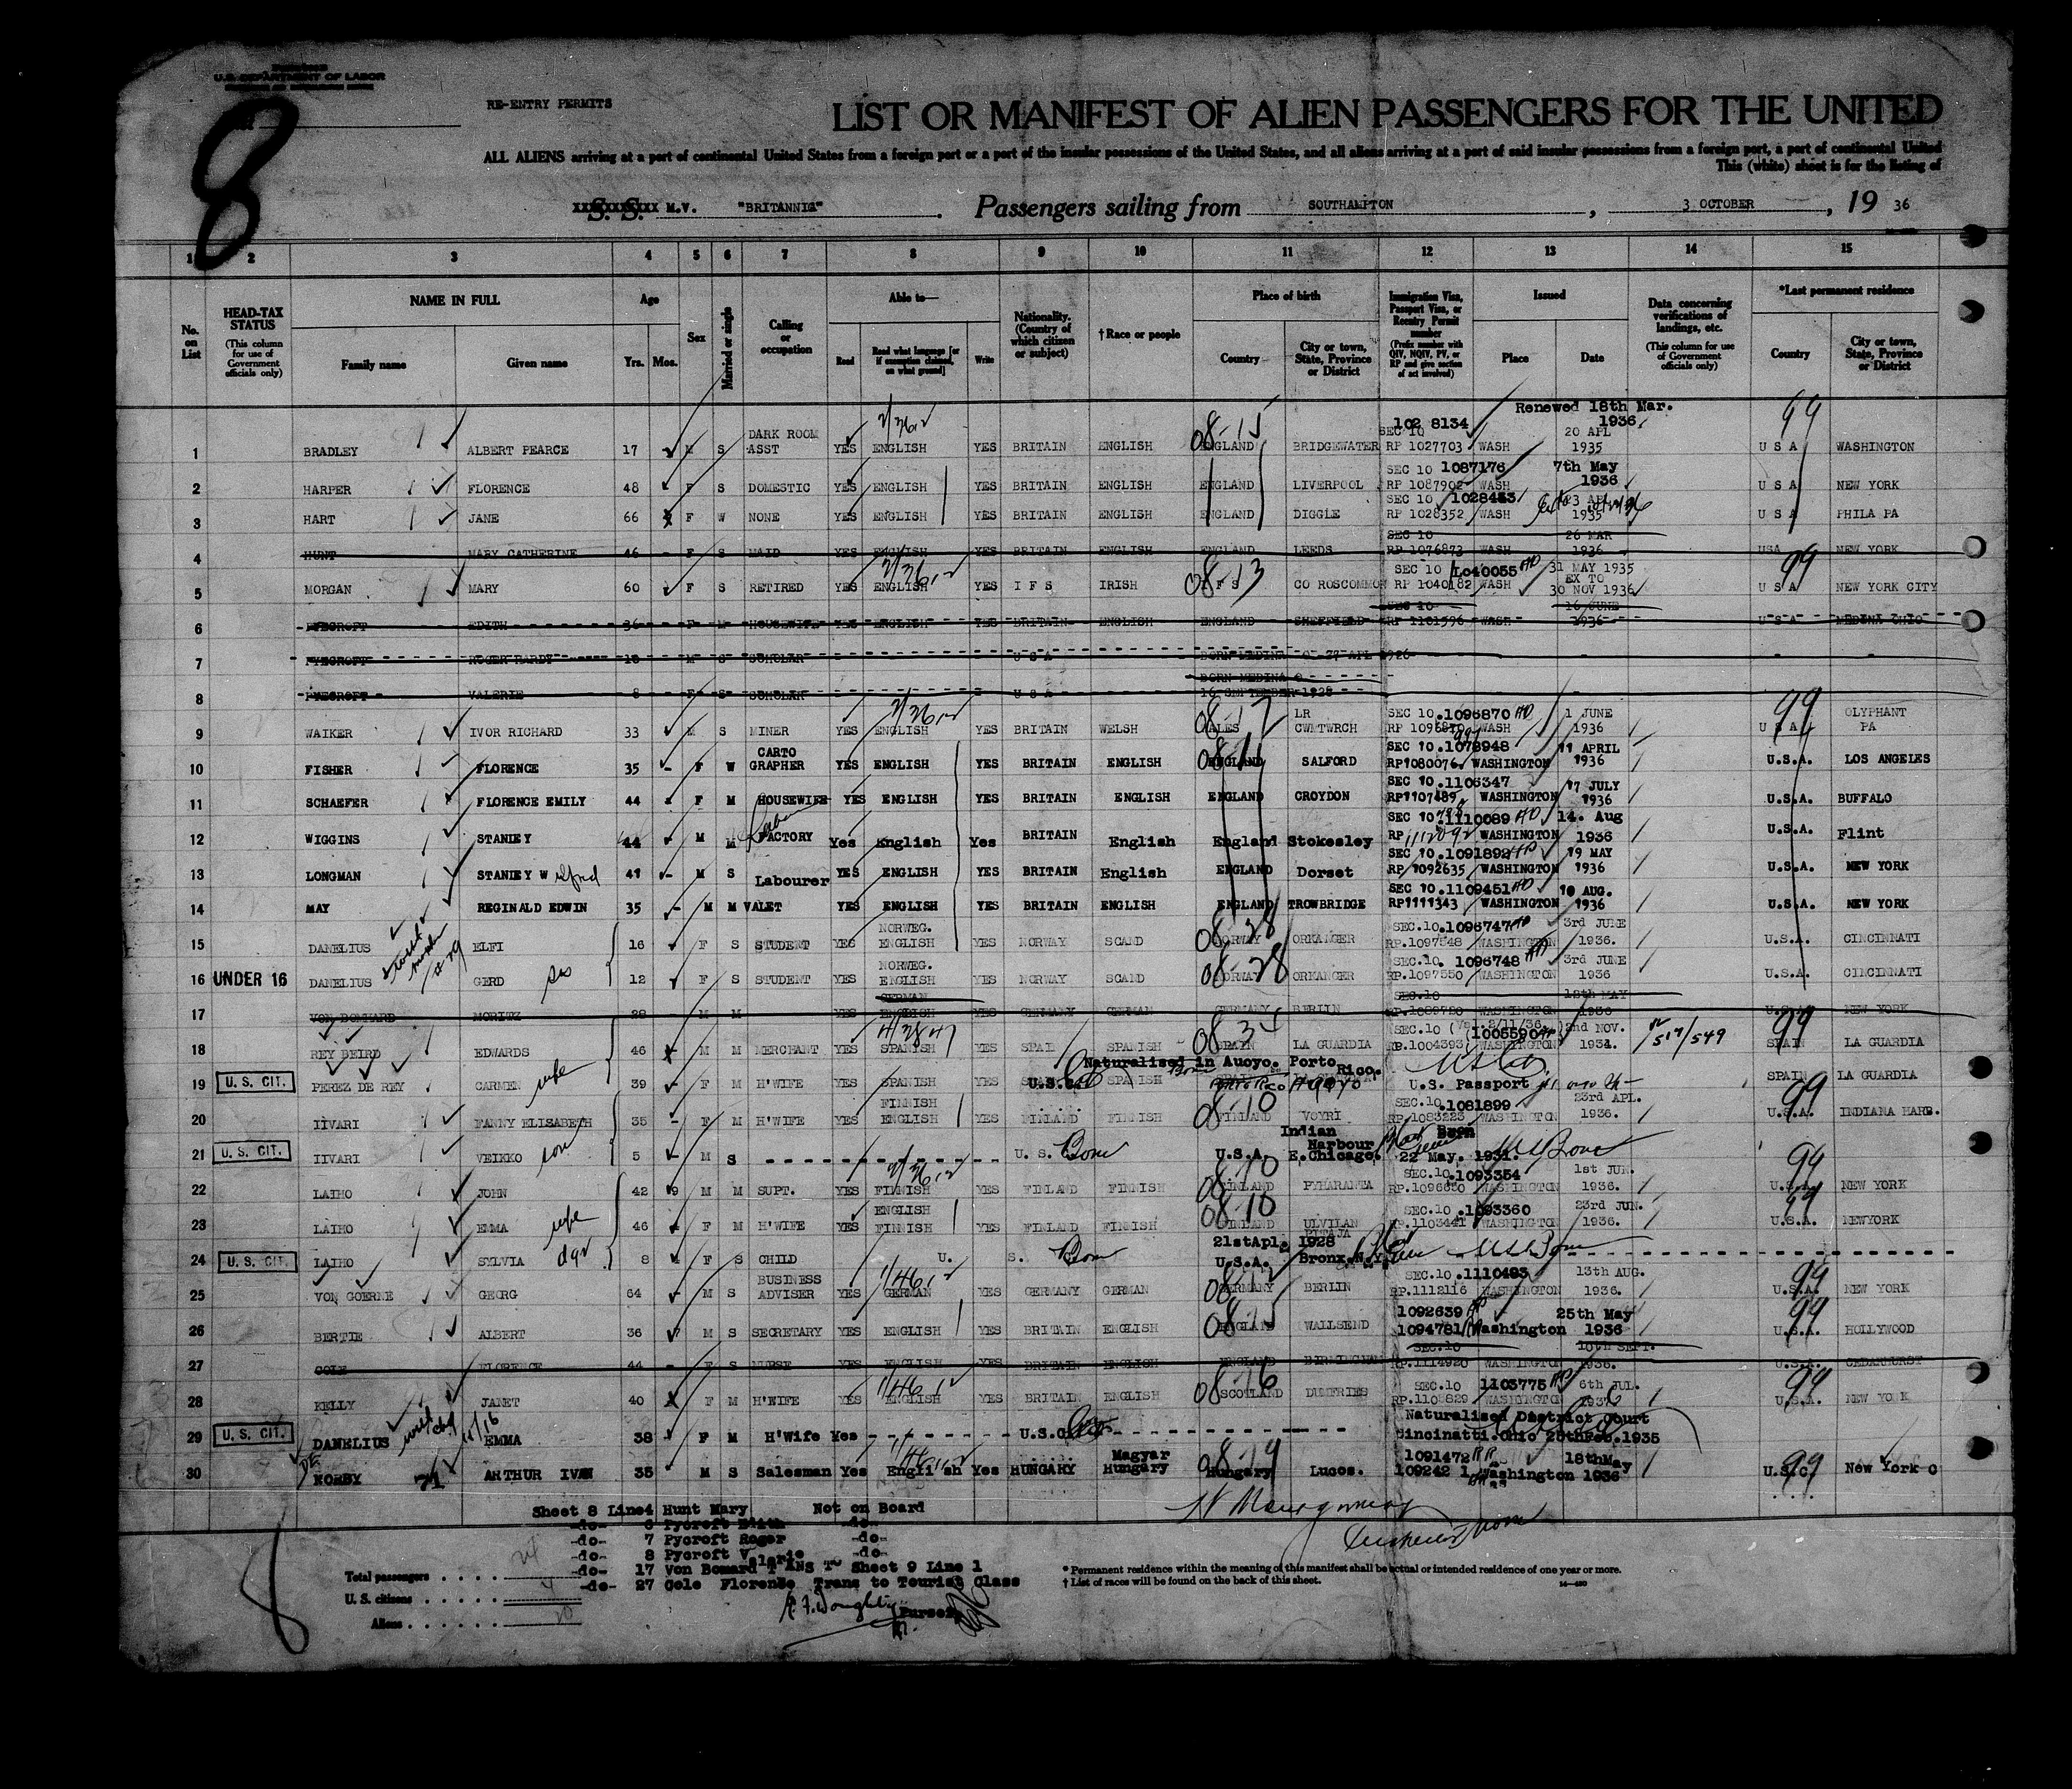 U.S. DEPARTMENT OF LABOR
RE-ENTRY PERMITS
8
LIST OR MANIFEST OF ALIEN PASSENGERS FOR THE UNITED
ALL ALIENS arriving at a port of continental United States from a foreign port or a port of the insular possessions of the United States, and all aliens arriving at a port of said insular possessions from a foreign port, a port of continental United
This (white) sheet is for the listing of
S. S. M.V. "BRITANNIC" Passengers sailing from SOUTHAMPTON, 3 OCTOBER, 19 36
1 2 3 4 5 6 7 8 9 10 11 12 13 14 15
No. on List HEAD-TAX STATUS (This column for use of Government officials only) NAME IN FULL Family name Given name Age Yrs. Mos. Sex Married or single Calling or occupation Able to— Read Read what language [or if exemption claimed, on what ground] Write Nationality. (Country of which citizen or subject) †Race or people Place of birth Country City or town, State, Province or District Immigration Visa, Passport Visa, or Reentry Permit number (Prefix number with QIV, NQIV, PV, or RP and give section of act involved) Issued Place Date Data concerning verifications of landings, etc. (This column for use of Government officials only) *Last permanent residence Country City or town, State, Province or District
Renewed 18th Mar. 1936
1 BRADLEY ALBERT PEARCE 17 M S DARK ROOM ASST YES ENGLISH YES BRITAIN ENGLISH ENGLAND BRIDGEWATER 102 8134 SEC 10 RP 1027703 WASH 20 APL 1935 U S A WASHINGTON
2 HARPER FLORENCE 48 F S DOMESTIC YES ENGLISH YES BRITAIN ENGLISH ENGLAND LIVERPOOL SEC 10 1087176 RP 1087902 WASH 7th May 1936 U S A NEW YORK
3 HART JANE 66 F W NONE YES ENGLISH YES BRITAIN ENGLISH ENGLAND DIGGLE SEC 10 1028453 RP 1028352 WASH 23 APL 1935 U S A PHILA PA
4 HUNT MARY CATHERINE 46 - F S MAID YES ENGLISH YES BRITAIN ENGLISH ENGLAND LEEDS SEC 10 RP 1076873 WASH 26 MAR 1936 USA NEW YORK
5 MORGAN MARY 60 F S RETIRED YES ENGLISH YES I F S IRISH I F S CO ROSCOMMON SEC 10 1040055 RP 1040182 WASH 31 MAY 1935 EX TO 30 NOV 1936 U S A NEW YORK CITY
6 PYECROFT EDITH 36 F M HOUSEWIFE YES ENGLISH YES BRITAIN ENGLISH ENGLAND SHEFFIELD SEC 10 RP 1101596 WASH 16 JUNE 1936 U S A MEDINA OHIO
7 PYECROFT ROGER HARDY 10 M S SCHOLAR U S A BORN MEDINA O 27 APL 1926
8 PYECROFT VALERIE 8 F S SCHOLAR U S A BORN MEDINA O 16 SEPTEMBER 1928
9 WALKER IVOR RICHARD 33 M S MINER YES ENGLISH YES BRITAIN WELSH WALES LR CWMTWRCH SEC 10 .1096870 WASH 1 JUNE 1936 U S A OLYPHANT PA
10 FISHER FLORENCE 35 - F W CARTO GRAPHER YES ENGLISH YES BRITAIN ENGLISH ENGLAND SALFORD SEC 10 .1078948 RP1080076 WASHINGTON 11 APRIL 1936 U.S.A. LOS ANGELES
11 SCHAEFER FLORENCE EMILY 44 F M HOUSEWIFE YES ENGLISH YES BRITAIN ENGLISH ENGLAND CROYDON SEC 10 .1106347 RP1107489 WASHINGTON 17 JULY 1936 U.S.A. BUFFALO
12 WIGGINS STANLEY 44 M M FACTORY Yes English Yes BRITAIN English England Stokesley SEC 10 .1110089 RP 1112092 WASHINGTON 14. Aug 1936 U.S.A. Flint
13 LONGMAN STANLEY W 41 M S Labourer YES ENGLISH YES BRITAIN English ENGLAND Dorset SEC 10 .1091892 RP 1092635 WASHINGTON 19 MAY 1936 U.S.A. NEW YORK
14 MAY REGINALD EDWIN 35 - M M VALET YES ENGLISH YES BRITAIN ENGLISH ENGLAND TROWBRIDGE SEC 10 .1109451 RP1111343 WASHINGTON 10 AUG. 1936 U.S.A. NEW YORK
15 DANELIUS ELFI 16 F S STUDENT YES NORWEG. ENGLISH YES NORWAY SCAND NORWAY ORKANGER SEC.10 .1096747 RP.1097548 WASHINGTON 3rd JUNE 1936. U.S.A. CINCINNATI
16 UNDER 16 DANELIUS GERD sis 12 F S STUDENT YES NORWEG. ENGLISH YES NORWAY SCAND NORWAY ORKANGER SEC.10. 1096748 RP.1097550 WASHINGTON 3rd JUNE 1936 U.S.A. CINCINNATI
17 VON BOMHARD MORITZ 28 M M YES GERMAN ENGLISH YES GERMANY GERMAN GERMANY BERLIN SEC.10 RP.1089720 WASHINGTON 18th MAY 1936 U.S.A. NEW YORK
18 REY BEIRD EDWARDS 46 M M MERCHANT YES SPANISH YES SPAIN SPANISH SPAIN LA GUARDIA SEC.10 1005590 RP.1004393 WASHINGTON 2nd NOV. 1934. SPAIN LA GUARDIA
Naturalised in Auoyo. Porto Rico.
19 U. S. CIT. PEREZ DE REY CARMEN wife 39 F M H'WIFE YES SPANISH YES U.S. SPANISH U.S. Passport SPAIN LA GUARDIA
20 IIVARI FANNY ELISABETH 35 - F M H'WIFE YES FINNISH ENGLISH YES FINLAND FINNISH FINLAND VOYRI SEC.10 .1081899 RP.1083223 WASHINGTON 23rd APL. 1936. U.S.A. INDIANA HARB.
21 U. S. CIT. IIVARI VEIKKO son 5 M S U. S. Born U.S.A. Indian Harbour E.Chicago. Born 22 May. 1931.
22 LAIHO JOHN 42 9 M M SUPT. YES FINNISH YES FINLAND FINNISH FINLAND PYHARANTA SEC.10 .1093354 RP.1096630 WASHINGTON 1st JUN. 1936. U.S.A. NEW YORK
23 LAIHO EMMA wife 46 F M H'WIFE YES ENGLISH FINNISH YES FINLAND FINNISH FINLAND ULVILAN PITAJA SEC.10 .1093360 RP.1103441 WASHINGTON 23rd JUN. 1936. U.S.A. NEWYORK
24 U. S. CIT. LAIHO SYLVIA dgr 8 F S CHILD U. S. Born 21stApl. 1928 U.S.A. Bronx.N.Y.
25 VON GOERNE GEORG 64 M S BUSINESS ADVISER YES GERMAN YES GERMANY GERMAN GERMANY BERLIN SEC.10 .1110493 RP.1112116 WASHINGTON 13th AUG. 1936. U.S.A. NEW YORK
26 BERTIE ALBERT 36 M S SECRETARY YES ENGLISH YES BRITAIN ENGLISH ENGLAND WALLSEND 1092639 1094781 Washington 25th May 1936 U.S.A. HOLLYWOOD
27 COLE FLORENCE 44 - F S NURSE YES ENGLISH YES BRITAIN ENGLISH ENGLAND BIRMINGHAM SEC.10 RP.1114920 WASHINGTON 10th SEPT. 1936. U.S.A. CEDARHURST
28 KELLY JANET 40 F M H'WIFE YES ENGLISH YES BRITAIN ENGLISH SCOTLAND DUMFRIES SEC.10 1103775 RP.1105829 WASHINGTON 6th JUL. 1936 U.S.A. NEW YORK
29 U. S. CIT. DANELIUS EMMA 38 F M H'Wife Yes U.S.C. Naturalised District Court Cincinatti.Ohio 25thFeb.1935
30 NORBY ARTHUR IVAN 35 M S Salesman Yes English Yes HUNGARY Magyar Hungary Hungary Lucos. 1091472 109242 1 Washington 18thMay 1936 U.S. New York C
Sheet 8 Line4 Hunt Mary Not on Board
-do- 6 Pycroft Edith -do-
-do- 7 Pycroft Roger -do-
-do- 8 Pycroft Valerie -do-
-do- 17 Von Bomard TRANS To Sheet 9 Line 1
-do- 27 Cole Florence Trans to Tourist Class
Purser
Total passengers 24
U. S. citizens 4
Aliens 20
* Permanent residence within the meaning of this manifest shall be actual or intended residence of one year or more.
† List of races will be found on the back of this sheet.
8